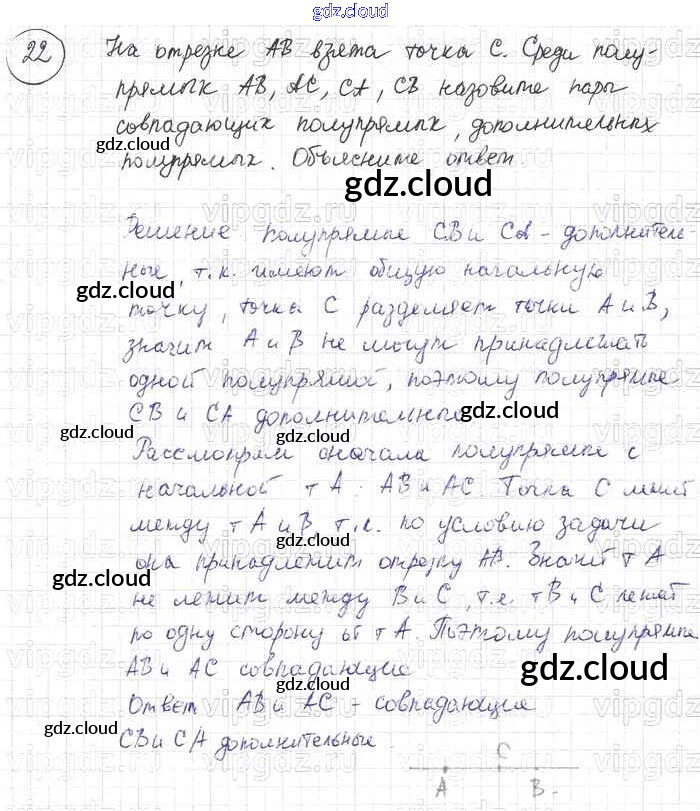 gdz.cloud
22 На отрезке АВ взята точка С. Среди полу-
прямых АВ, АС, СА, СВ назовите пары
совпадающих полупрямых, дополнительных
gdz.cloud
полупрямых. Объясните ответ.
gdz.cloud
Решение полупрямые СВ и СА - дополнитель-
ные, т.к. имеют общую начальную
gdz.cloud
точку, точка С разделяет точки А и В,
значит А и В не могут принадлежать
одной полупрямой, поэтому полупрямые
СВ и СА дополнительные
gdz.cloud
gdz.cloud
gdz.cloud
Рассмотрим сначала полупрямые с
начальной т А: АВ и АС. Точка С лежит
между т А и В т.к. по условию задачи
gdz.cloud
она принадлежит отрезку АВ. Значит т А
gdz.cloud
не лежит между В и С, т.е. т В и С лежат
по одну сторону от т А. Поэтому полупрямые
АВ и АС совпадающие
gdz.cloud
gdz.cloud
Ответ АВ и АС - совпадающие
gdz.cloud
СВ и СА дополнительные
С
А В